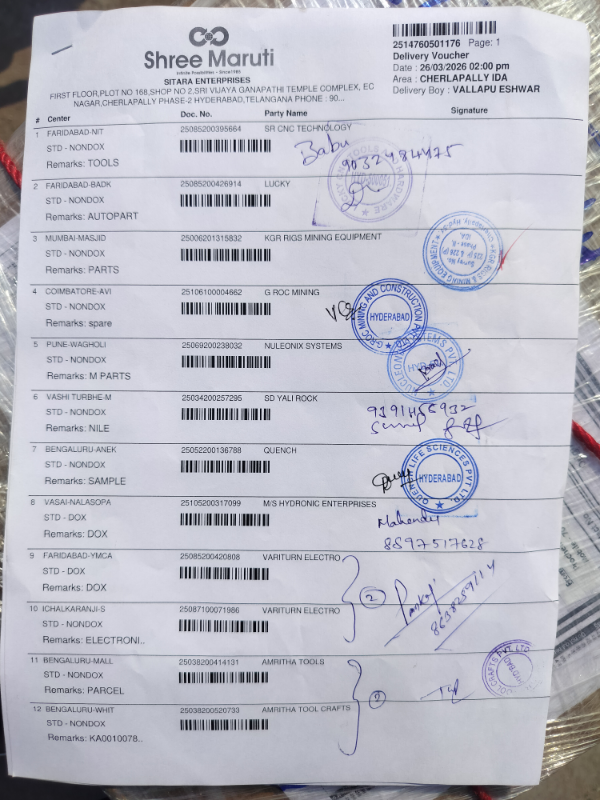 Shree Maruti
Infinite Possibilities - Since 1985
SITARA ENTERPRISES
FIRST FLOOR,PLOT NO 168,SHOP NO 2,SRI VIJAYA GANAPATHI TEMPLE COMPLEX, EC
NAGAR,CHERLAPALLY PHASE-2 HYDERABAD,TELANGANA PHONE : 90...
2514760501176 Page: 1
Delivery Voucher
Date : 26/03/2026 02:00 pm
Area : CHERLAPALLY IDA
Delivery Boy : VALLAPU ESHWAR
# Center Doc. No. Party Name Signature
1 FARIDABAD-NIT 25085200395664 SR CNC TECHNOLOGY
STD - NONDOX
Remarks: TOOLS
Babu
9032484475
2 FARIDABAD-BADK 25085200426914 LUCKY
STD - NONDOX
Remarks: AUTOPART
3 MUMBAI-MASJID 25006201315832 KGR RIGS MINING EQUIPMENT
STD - NONDOX
Remarks: PARTS
4 COIMBATORE-AVI 25106100004662 G ROC MINING
STD - NONDOX
Remarks: spare
G-ROC MINING AND CONSTRUCTION PVT. LTD.
HYDERABAD
5 PUNE-WAGHOLI 25069200238032 NULEONIX SYSTEMS
STD - NONDOX
Remarks: M PARTS
6 VASHI TURBHE-M 25034200257295 SD YALI ROCK
STD - NONDOX
Remarks: NILE
9391456932
7 BENGALURU-ANEK 25052200136788 QUENCH
STD - NONDOX
Remarks: SAMPLE
QUENCH LIFE SCIENCES PVT. LTD.
HYDERABAD
8 VASAI-NALASOPA 25105200317099 M/S HYDRONIC ENTERPRISES
STD - DOX
Remarks: DOX
Mahender
8897517628
9 FARIDABAD-YMCA 25085200420808 VARITURN ELECTRO
STD - DOX
Remarks: DOX
2
Pankaj
8638259114
10 ICHALKARANJI-S 25087100071986 VARITURN ELECTRO
STD - NONDOX
Remarks: ELECTRONI..
11 BENGALURU-MALL 25038200414131 AMRITHA TOOLS
STD - NONDOX
Remarks: PARCEL
2
12 BENGALURU-WHIT 25038200520733 AMRITHA TOOL CRAFTS
STD - NONDOX
Remarks: KA0010078..